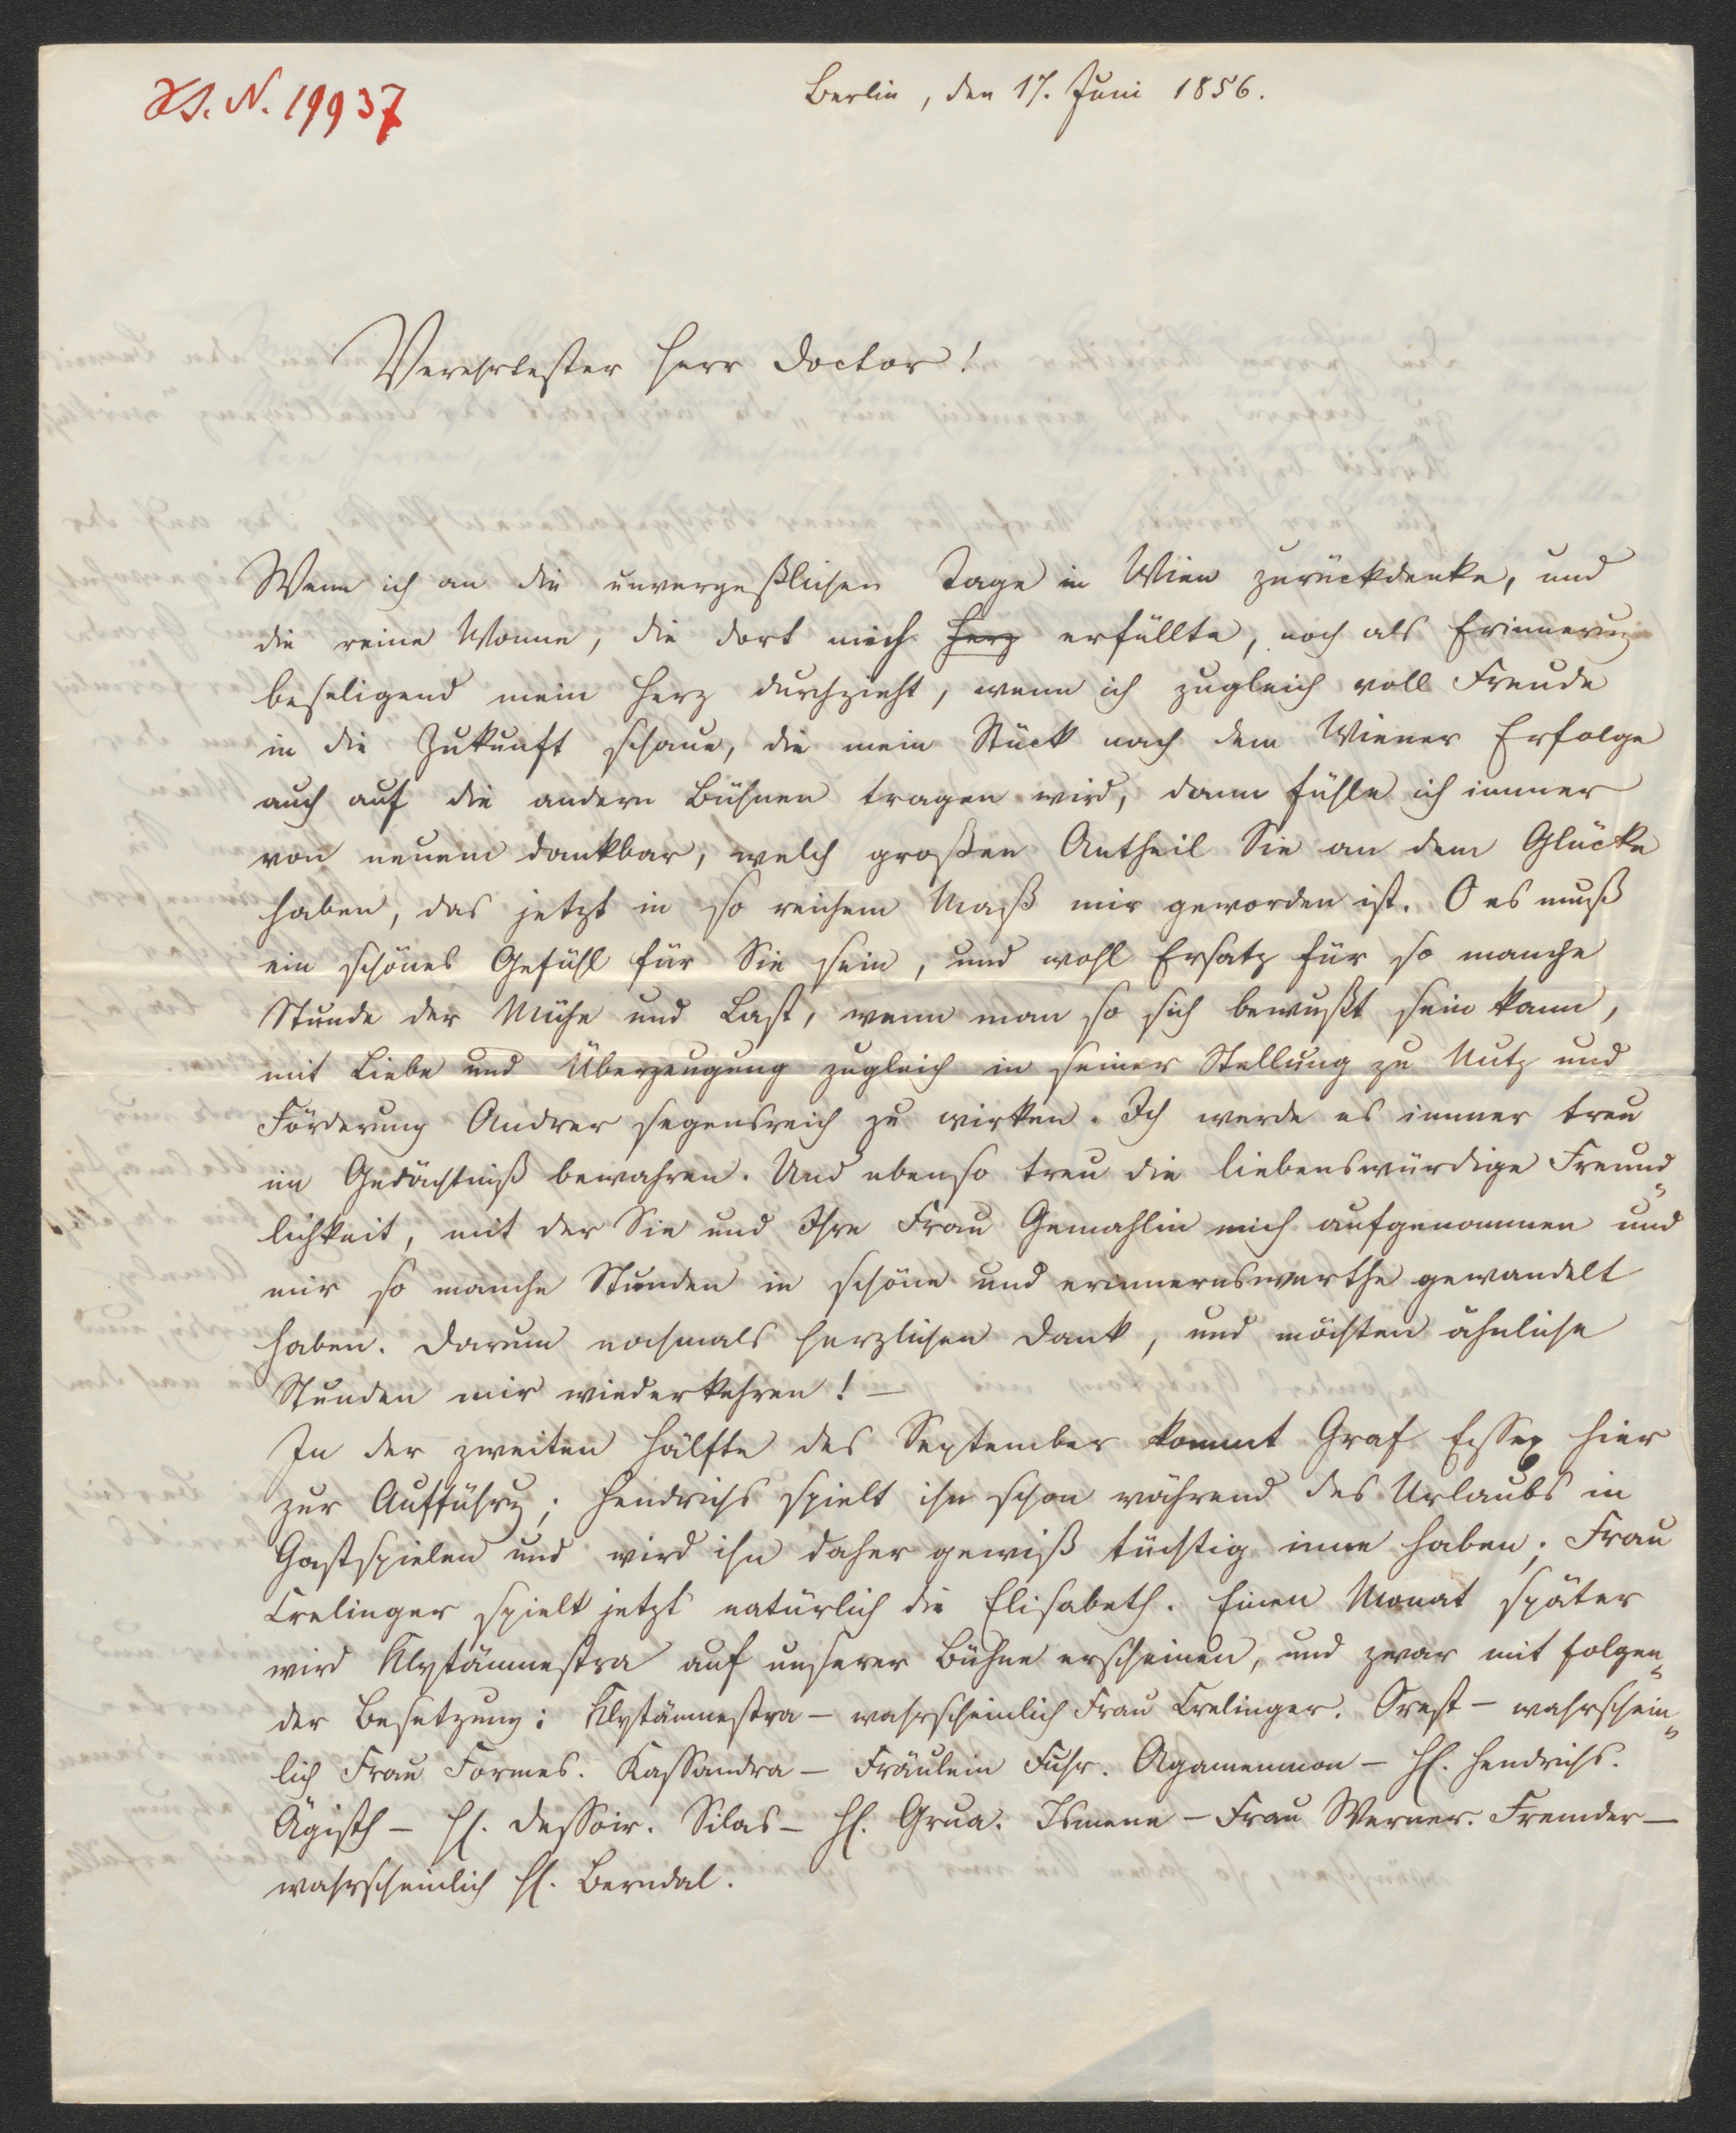 H.I.N. 19937
Berlin, den 17. Juni 1856.
Verehrtester Herr Doctor!
Wenn ich an die unvergeßlichen Tage in Wien zurückdenke, und
die reine Wonne, die dort mich Herz erfüllte, noch als Erinnerung
beseligend mein Herz durchzieht, wenn ich zugleich voll Freude
in die Zukunft schaue, die mein Stück nach dem Wiener Erfolge
auch auf die andern Bühnen tragen wird, dann fühle ich immer
von neuem dankbar, welch großen Antheil Sie an dem Glücke
haben, das jetzt in so reichem Maß mir geworden ist. O es muß
ein schönes Gefühl für Sie sein, und wohl Ersatz für so manche
Stunde der Mühe und Last, wenn man so sich bewußt sein kann,
mit Liebe und Überzeugung zugleich in seiner Stellung zu Nutz und
Förderung Andrer segensreich zu wirken. Ich werde es immer treu
im Gedächtniß bewahren. Und ebenso treu die liebenswürdige Freund-
lichkeit, mit der Sie und Ihre Frau Gemahlin mich aufgenommen und
mir so manche Stunden in schöne und erinnernswerthe gewandelt
haben. Darum nochmals herzlichen Dank, und möchten ähnliche
Stunden mir wiederkehren! –
In der zweiten Hälfte des September kommt Graf Essex hier
zur Aufführung; Hendrichs spielt ihn schon während des Urlaubs in
Gastspielen und wird ihn daher gewiß tüchtig inne haben; Frau
Crelinger spielt jetzt natürlich die Elisabeth. Einen Monat später
wird Klytämnestra auf unserer Bühne erscheinen, und zwar mit folgen-
der Besetzung: Klytämnestra – wahrscheinlich Frau Crelinger. Orest – wahrschein-
lich Frau Formes. Kassandra – Fräulein Fuhr. Agamemnon – H. Hendrichs.
Ägisth – H. Dessoir. Silas – H. Grua. Ismene – Frau Werner. Fremder –
wahrscheinlich H. Berndal.